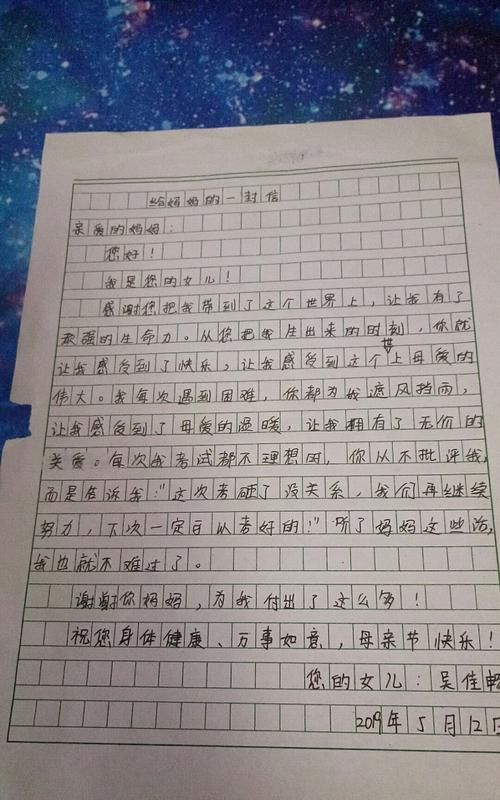 给妈妈的一封信
亲爱的妈妈：
您好！
我是您的女儿！
感谢您把我带到了这个世界上，让我有了
顽强的生命力。从您把我生出来的时刻，你就
让我感受到了快乐，让我感受到这个世上母爱的
伟大。我每次遇到困难，你都为我遮风挡雨，
让我感受到了母爱的温暖，让我拥有了无价的
关爱。每次我考试都不理想时，你从不批评我，
而是告诉我："这次考砸了没关系，我们再继续
努力，下次一定可以考好的！"听了妈妈这些话，
我也就不难过了。
谢谢你妈妈，为我付出了这么多！
祝您身体健康、万事如意，母亲节快乐！
您的女儿：吴佳
2019年5月12日